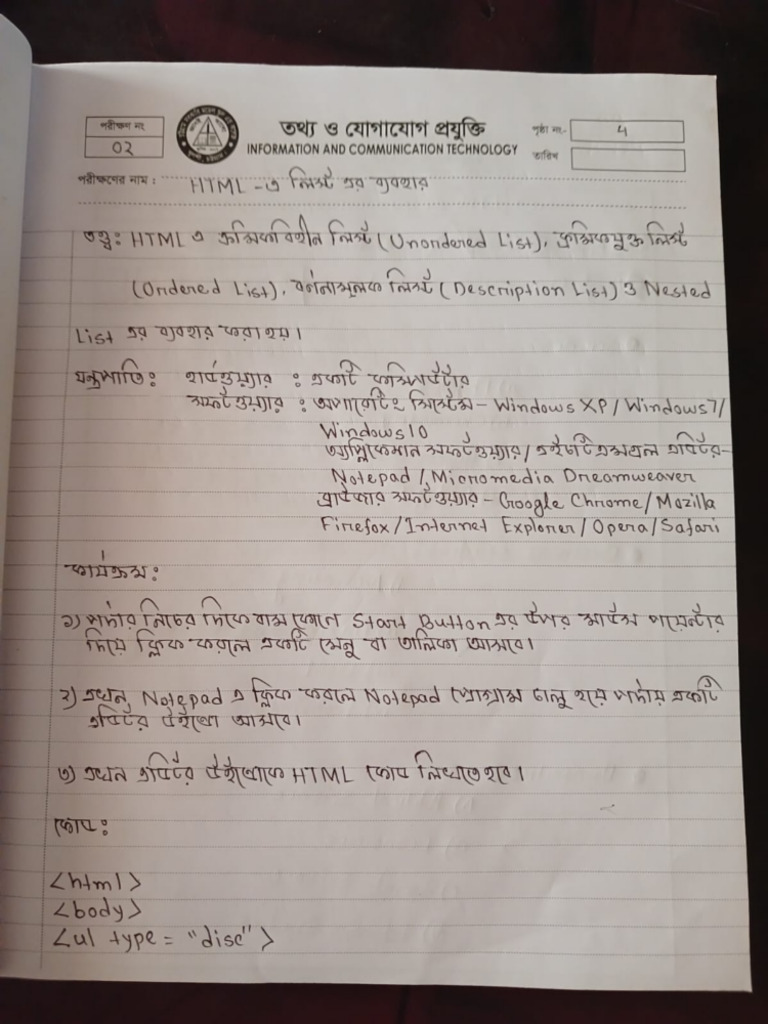 পরীক্ষণ নং
02
তথ্য ও যোগাযোগ প্রযুক্তি
INFORMATION AND COMMUNICATION TECHNOLOGY
পৃষ্ঠা নং- 4
তারিখ
পরীক্ষণের নাম : HTML -এ লিস্ট এর ব্যবহার
তত্ত্ব: HTML এ ক্রমিকবিহীন লিস্ট (Unordered List), ক্রমিকযুক্ত লিস্ট
(Ordered List), বর্ণনামূলক লিস্ট (Description List) ও Nested
List এর ব্যবহার করা হয়।
যন্ত্রপাতি: হার্ডওয়্যার : একটি কম্পিউটার
সফটওয়্যার : অপারেটিং সিস্টেম - Windows XP / Windows 7/
Windows 10
অ্যাপ্লিকেশন সফটওয়্যার / এইচটিএমএল এডিটর-
Notepad / Micromedia Dreamweaver
ব্রাউজার সফটওয়্যার - Google Chrome / Mozilla
Firefox / Internet Explorer / Opera / Safari
কার্যক্রম:
১) পর্দার নিচের দিকে বাম কোণে Start Button এর উপর মাউস পয়েন্টার
নিয়ে ক্লিক করলে একটি মেনু বা তালিকা আসবে।
২) এখন Notepad এ ক্লিক করলে Notepad প্রোগ্রাম চালু হয়ে পর্দায় একটি
এডিটর উইন্ডো আসবে।
৩) এখন এডিটর উইন্ডোতে HTML কোড লিখতে হবে।
কোড:
<html>
<body>
<ul type = "disc">